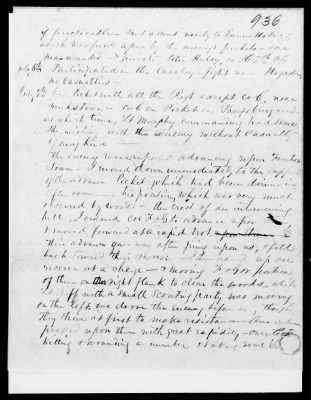 936
if practicable — Sent a scout nearly to Emmitsburg
which was fired upon by the enemy's pickets — one
man wounded — private Peter
July 6th Participated in the Cavalry fight near Hagerstown
No Casualties —
July On Picket with all the Regt except Co G, near
Funkstown — Co G on Picket on Sharpsburg road
at which time, Lt Murphy commanding had some
skirmishing with the Enemy without Casualty
of any kind —
The enemy were reported advancing upon Funks
town — I moved down immediately to the support
of the advance Picket which had been driven in
after some time — his position which was very much
covered by woods — the crest of an intervening
hill, I ordered Cos F & G to advance upon it
& moved forward at a rapid trot
Their advance gave way after firing upon us, & fell
back toward their reserve — I then moved up our
reserve at a charge — & moving F & G or portions
of them on the right flank to clear the woods, while
Lt with a small Scouting party was moving
on the left, we drove the enemy before us, though
they tried at first to make resistance —
pressed upon them with great rapidity — over
killing & wounding a number & taking some 12